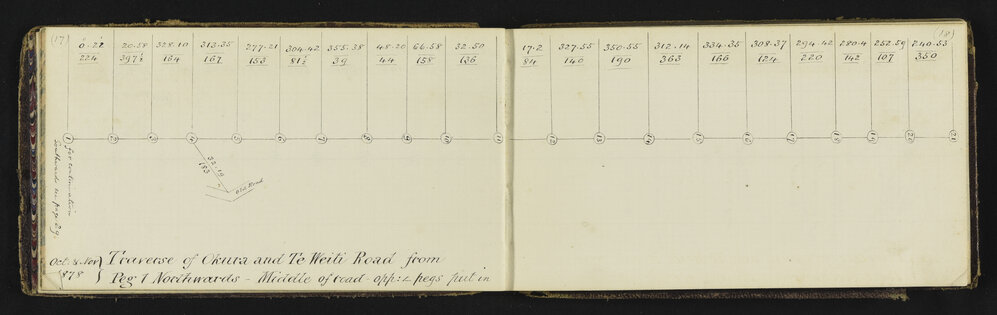 (17)
0.22 20.58 328.10 313.35 277.21 304.42 355.38 48.20 66.58 32.50
224 397½ 164 167 153 81½ 39 44 158 136
1 2 3 4 5 6 7 8 9 10 11
for continuation
Southwards see page 29.
32.19
183
Old Road
Oct & Nov
1878
Traverse of Okura and Te Weiti Road from
Peg 1 Northwards - Middle of road - opp:te pegs put in
(18)
17.2 327.55 350.55 312.14 334.35 308.37 294.42 280.4 252.59 240.53
84 140 190 363 166 124 220 142 107 350
12 13 14 15 16 17 18 19 20 21